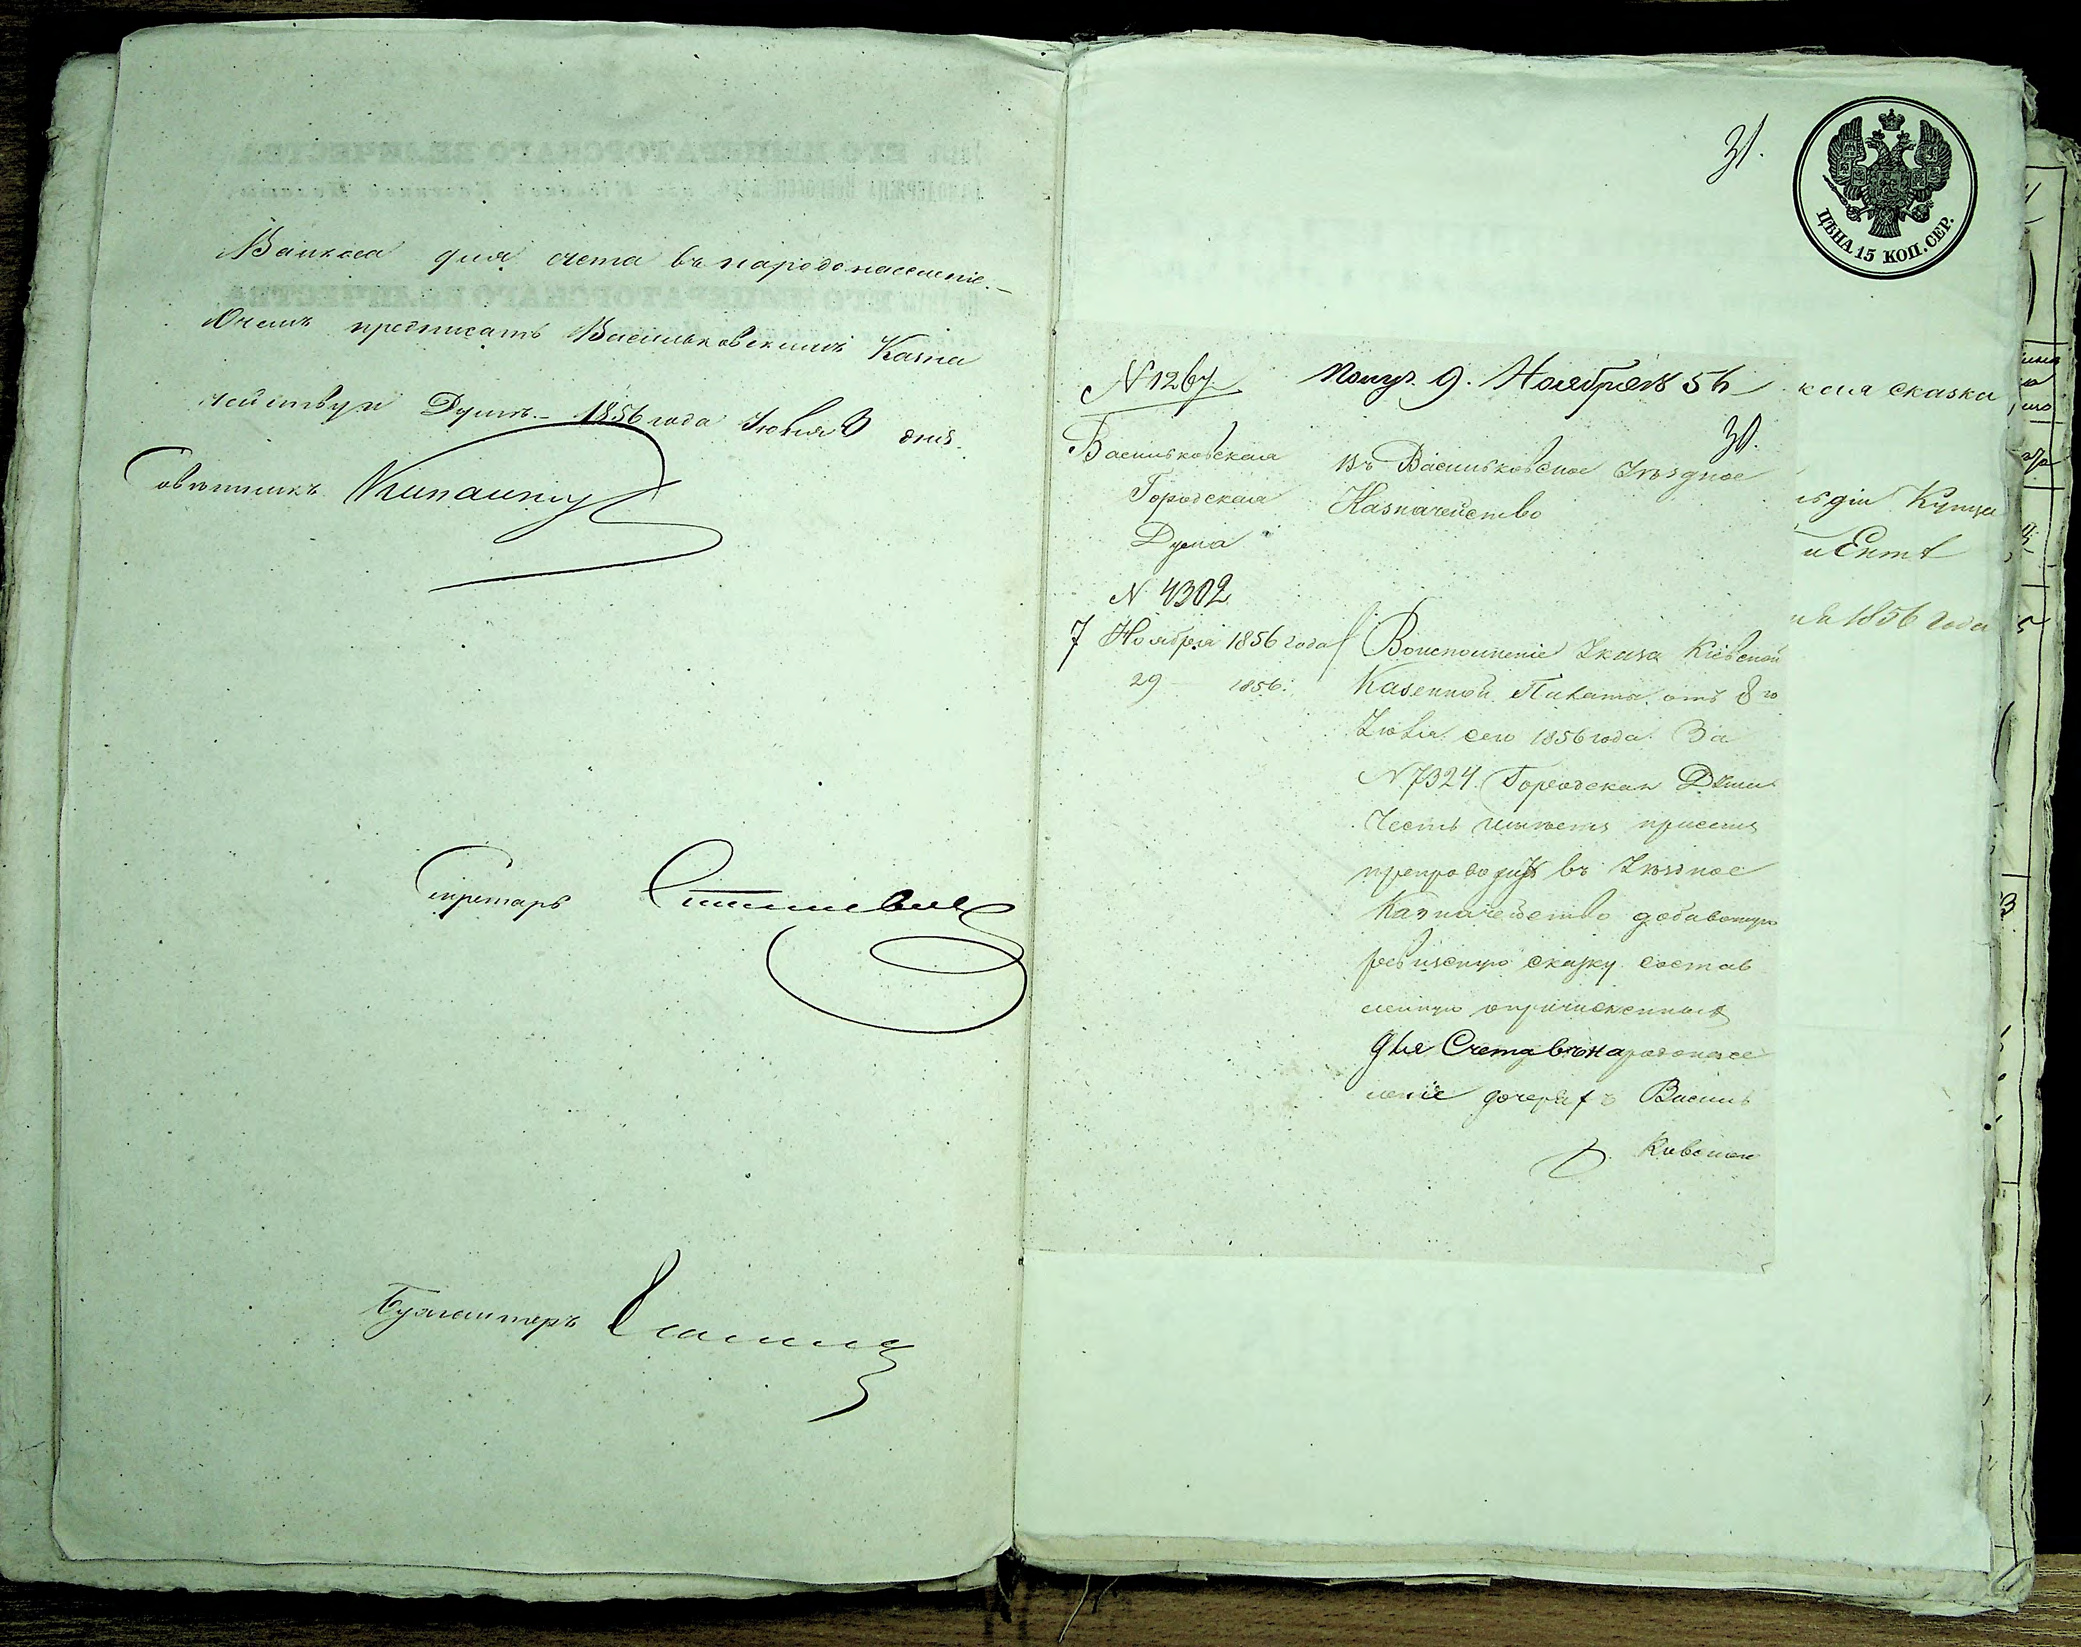 для счета въ народонаселеніе.-
О чемъ предписать Васильковскимъ Казна
чейству и Думѣ.- 1856 года Іюля 3 дня.
Совѣтникъ
Секретарь
Бухгалтеръ
31.
ЦѢНА 15 КОП. СЕР.
N 1267. Получ. 9. Ноября 56
кая сказка
31.
Васильковская
Городская
Дума
N 4302
7 Ноября 1856 года
29 — 1856.
Въ Васильковское Уѣздное
Казначейство
Купца
1856 года
Во исполненіе Указа Кіевской
Казенной Палаты отъ 8го
Іюля сего 1856 года За
N 7324. Городская Дума
Честь имѣетъ при семъ
препроводить въ Уѣздное
Казначейство добавочную
ревизскую сказку состав
ленную о причисленныхъ
для Счета въ народонасе
леніе дочеряхъ Василь
ковскаго